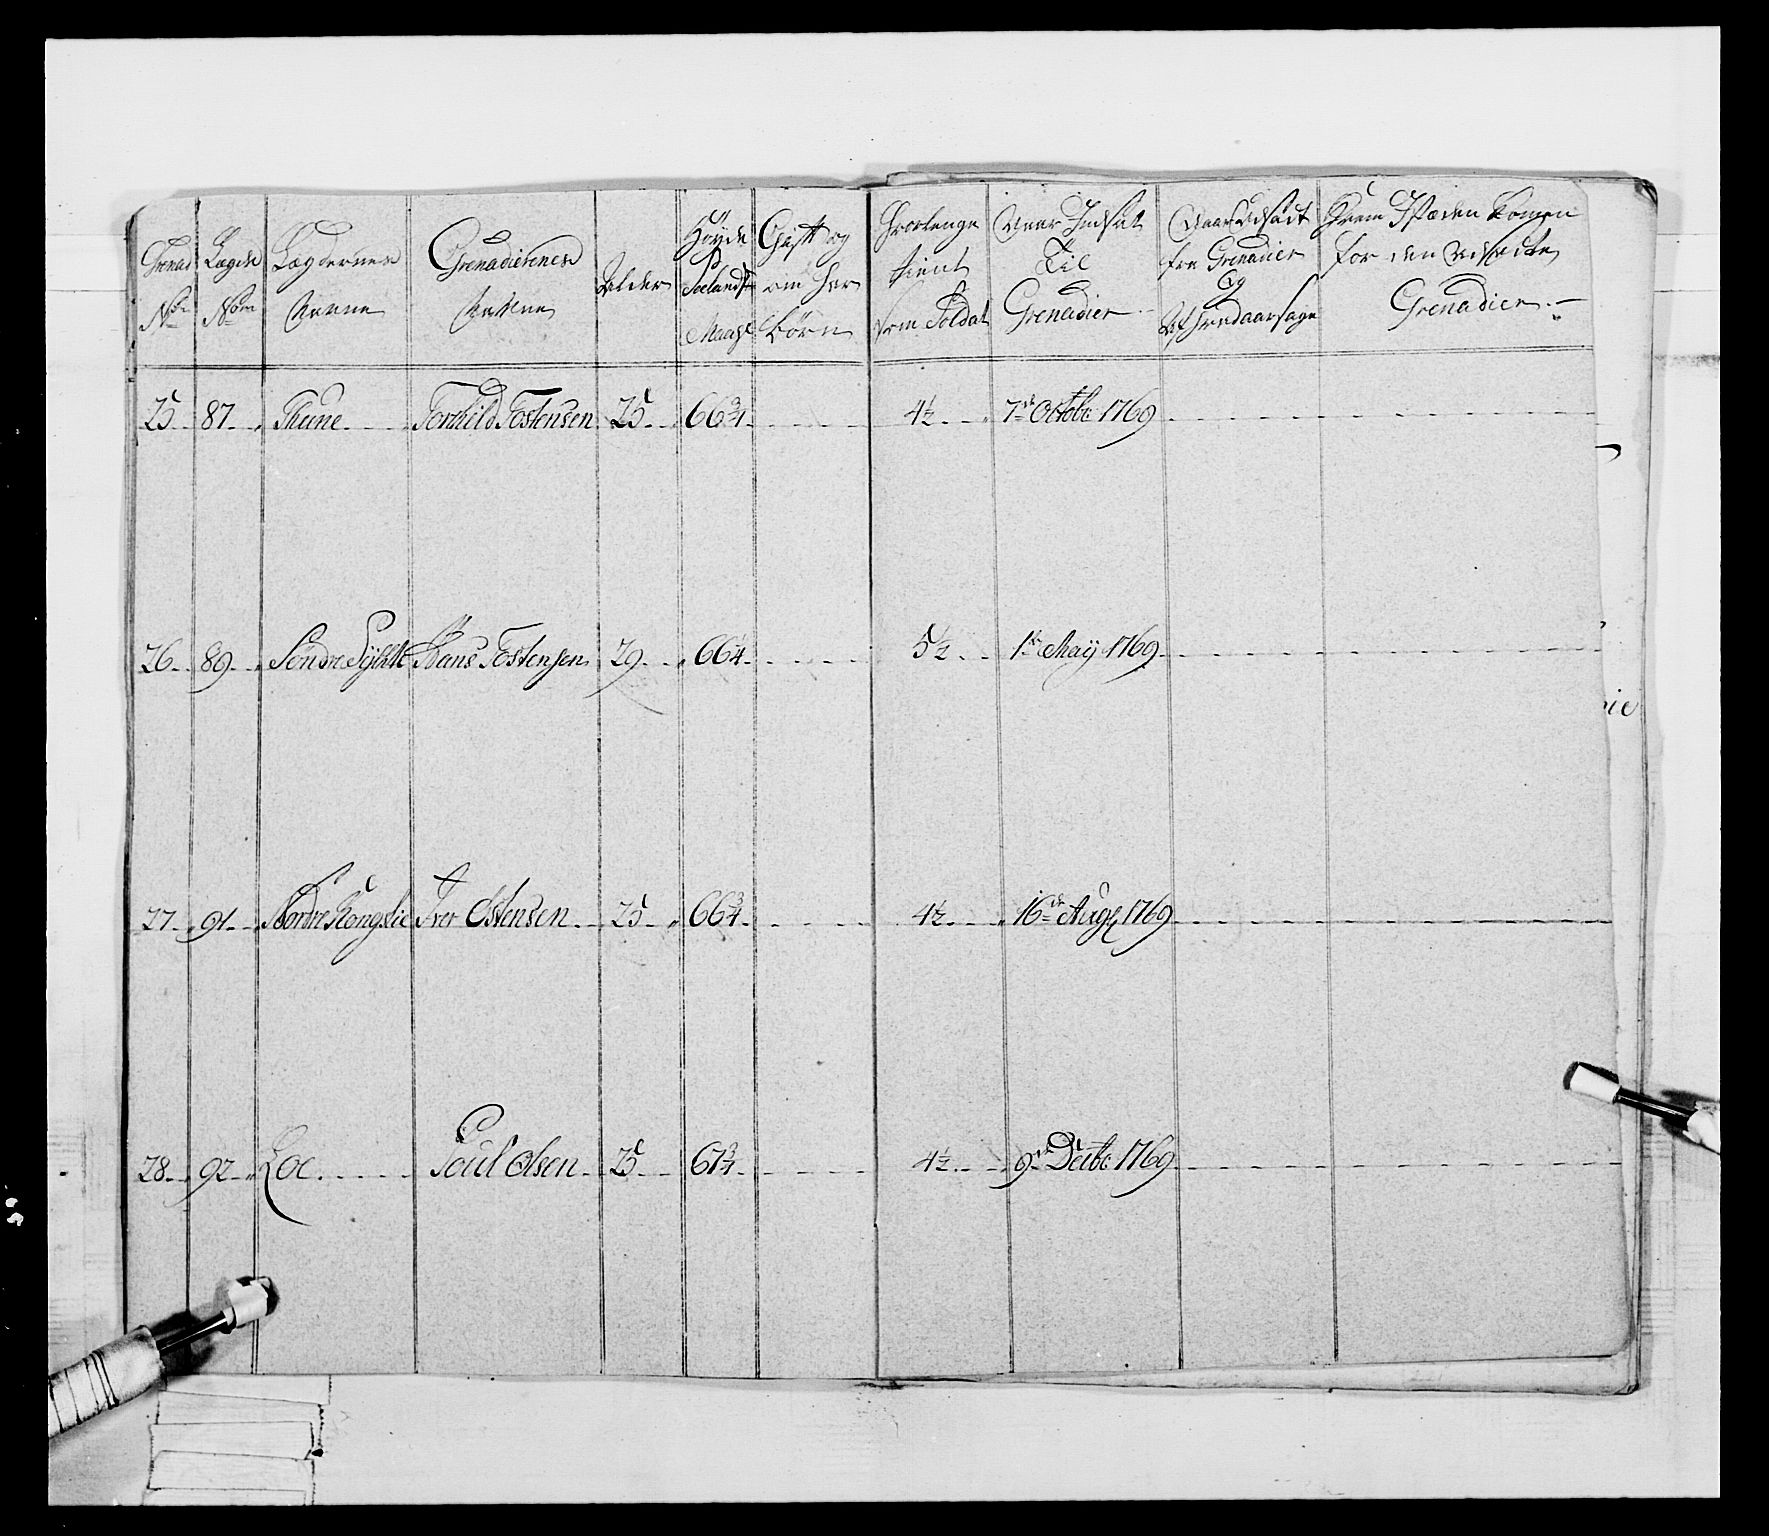 Grenad Nor | Lægde Nom | Lægdernes Navne | Grenadierenes Navne | Alder | Höyde Seelandsk Maasse | Gift og om har börn | Hvorlenge tient som Soldat | Naar Indsat Til Grenadier | Naar Udsadt fra Grenadier Og Af hvad aarsage | Hvem I Stæden kommen for den udsadte Grenadier
25 | 87 | Thune | Torkild Tostensen | 25 | 66 3/4 | | 4 1/2 | 7de Octobr 1769
26 | 89 | Söndre | Hans Tostensen | 29 | 66 1/4 | | 5 1/2 | 1te Maÿ 1769
27 | 91 | Nordre Kongslie | Iver Ostensen | 25 | 66 3/4 | | 4 1/2 | 16de Aug 1769
28 | 92 | Loe | Poul Olsen | 25 | 67 3/4 | | 4 1/2 | 9de Decbr 1769